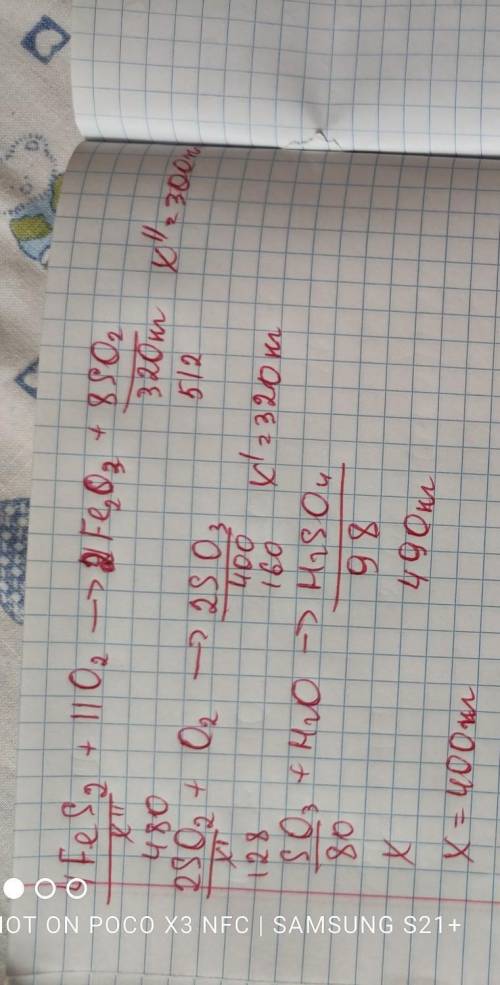 4FeS2 + 11O2 → 2Fe2O3 + 8SO2
x'' 320кг
480 512 x'' = 300кг
2SO2 + O2 → 2SO3
x' 400
128 160 x' = 320кг
SO3 + H2O → H2SO4
80 98
x 490кг
x = 400кг
HOT ON POCO X3 NFC | SAMSUNG S21+